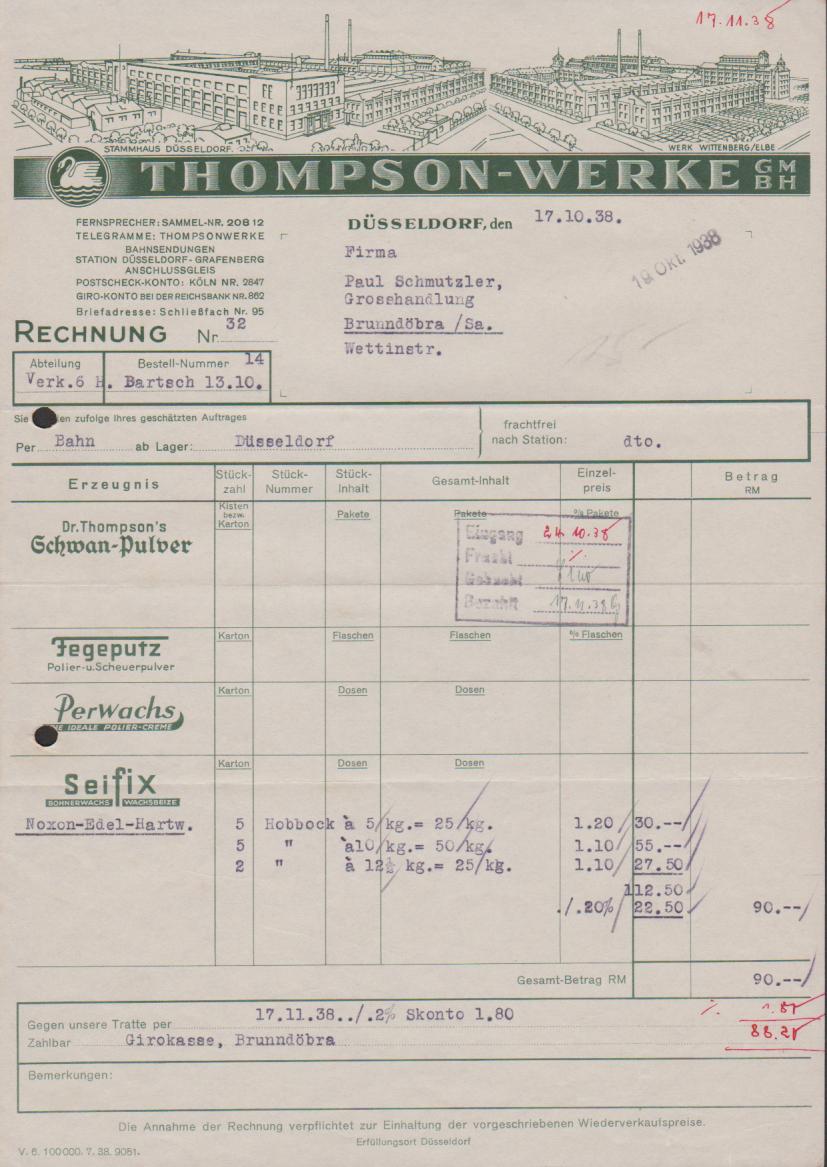 17.11.38
STAMMHAUS DÜSSELDORF.
WERK WITTENBERG/ELBE
THOMPSON-WERKE GMBH
FERNSPRECHER: SAMMEL-NR. 20812
TELEGRAMME: THOMPSONWERKE
BAHNSENDUNGEN
STATION DÜSSELDORF-GRAFENBERG
ANSCHLUSSGLEIS
POSTSCHECK-KONTO: KÖLN NR. 2847
GIRO-KONTO BEI DER REICHSBANK NR. 862
Briefadresse: Schließfach Nr. 95
DÜSSELDORF, den 17.10.38.
19 OKT. 1938
Firma
Paul Schmutzler,
Grosshandlung
Brunndöbra /Sa.
Wettinstr.
RECHNUNG Nr. 32
Abteilung Bestell-Nummer 14
Verk.6 H. Bartsch 13.10.
Sie zufolge Ihres geschätzten Auftrages
Per Bahn ab Lager: Düsseldorf
frachtfrei
nach Station: dto.
Erzeugnis Stück-zahl Stück-Nummer Stück-Inhalt Gesamt-Inhalt Einzel-preis Betrag RM
Kisten bezw. Karton Pakete Pakete % Pakete
Dr. Thompson's
Schwan-Pulver
Eingang 24.10.38
Fracht %
Gebucht
Bezahlt 17.11.38
Karton Flaschen Flaschen % Flaschen
Fegeputz
Polier-u.Scheuerpulver
Karton Dosen Dosen
Perwachs
IDEALE POLIER-CREME
Karton Dosen Dosen
Seifix
BOHNERWACHS WACHSBEIZE
Noxon-Edel-Hartw. 5 Hobbock à 5 kg.= 25 kg. 1.20 30.--
5 " à10 kg.= 50 kg. 1.10 55.--
2 " à 12½ kg.= 25 kg. 1.10 27.50
112.50
./.20% 22.50 90.--
Gesamt-Betrag RM 90.--
Gegen unsere Tratte per 17.11.38../.2% Skonto 1.80
Zahlbar Girokasse, Brunndöbra
Bemerkungen:
Die Annahme der Rechnung verpflichtet zur Einhaltung der vorgeschriebenen Wiederverkaufspreise.
Erfüllungsort Düsseldorf
V. 6. 100000. 7. 38. 9051.